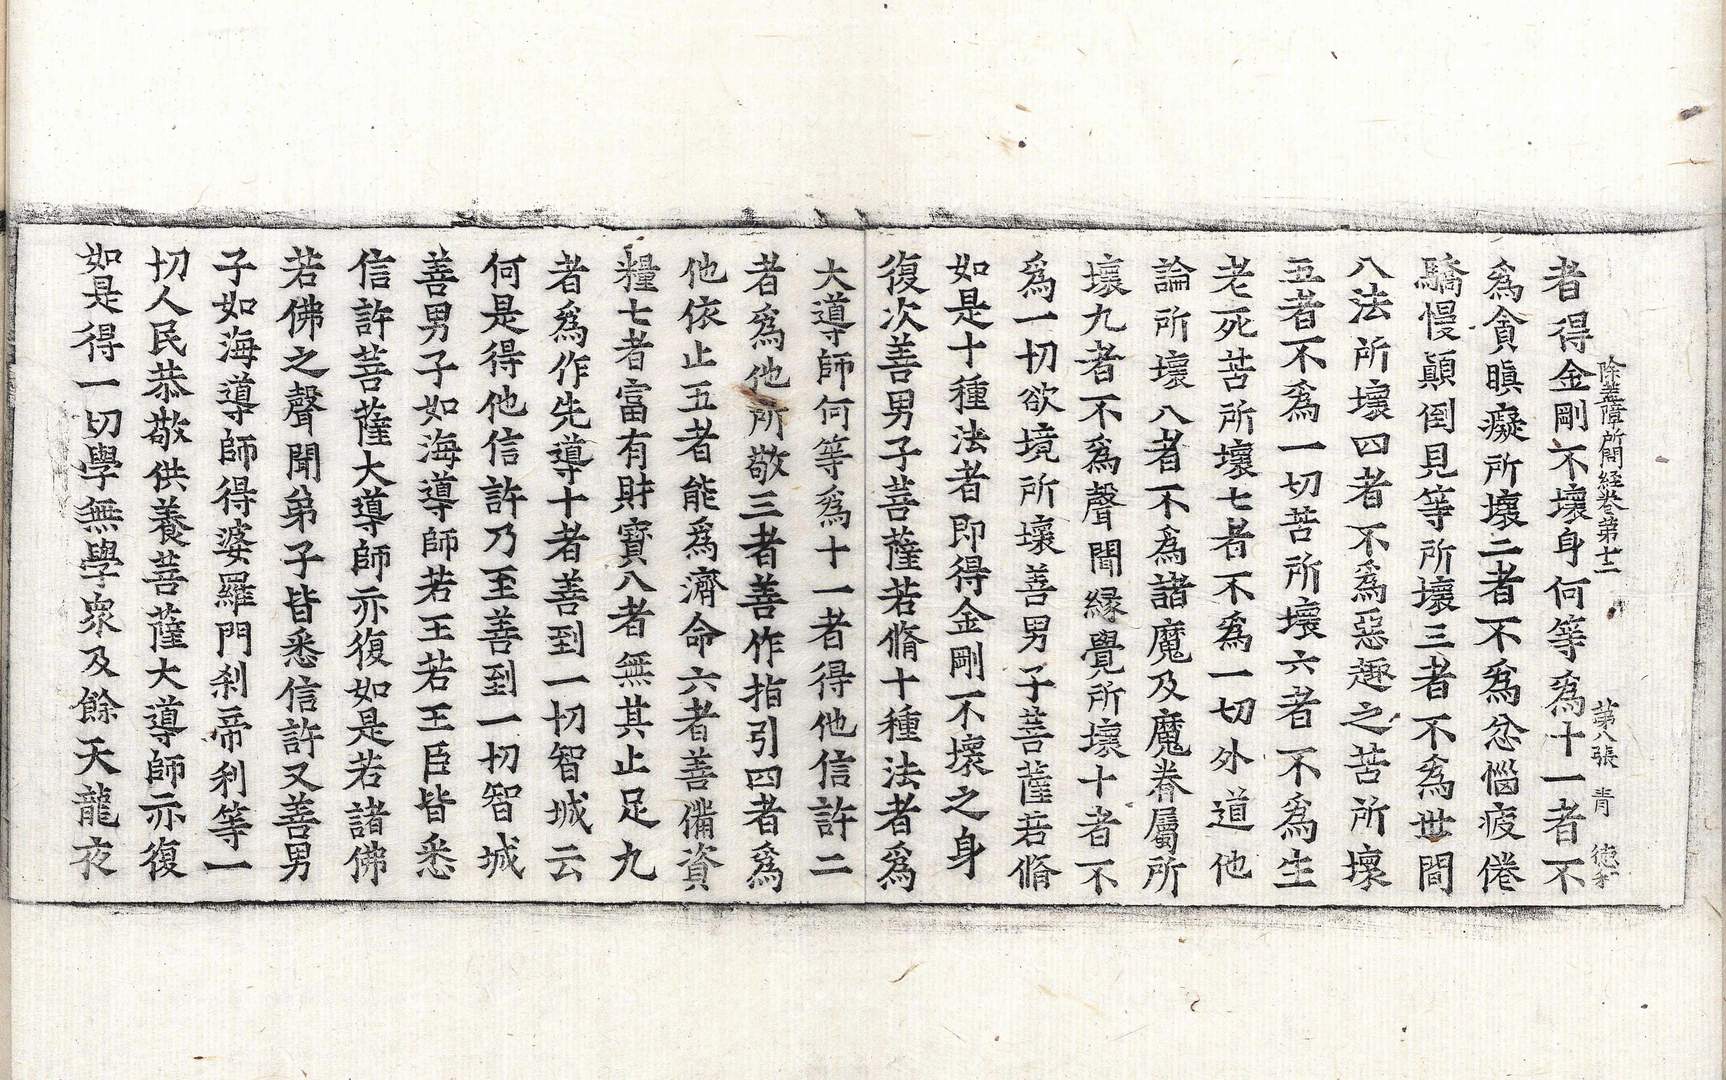 除蓋障所問経卷第十二 第八張 青
者得金剛不壞身何等爲十一者不
爲貪瞋癡所壞二者不爲忿惱疲倦
驕慢顚倒見等所壞三者不爲世間
八法所壞四者不爲惡趣之苦所壞
五者不爲一切苦所壞六者不爲生
老死苦所壞七者不爲一切外道他
論所壞八者不爲諸魔及魔眷屬所
壞九者不爲聲聞緣覺所壞十者不
爲一切欲境所壞善男子菩薩若脩
如是十種法者即得金剛不壞之身
復次善男子菩薩若脩十種法者爲
大導師何等爲十一者得他信許二
者爲他所敬三者善作指引四者爲
他依止五者能爲濟命六者善備資
糧七者富有財寶八者無其止足九
者爲作先導十者善到一切智城云
何是得他信許乃至善到一切智城
善男子如海導師若王若王臣皆悉
信許菩薩大導師亦復如是若諸佛
若佛之聲聞弟子皆悉信許又善男
子如海導師得婆羅門刹帝利等一
切人民恭敬供養菩薩大導師亦復
如是得一切學無學眾及餘天龍夜